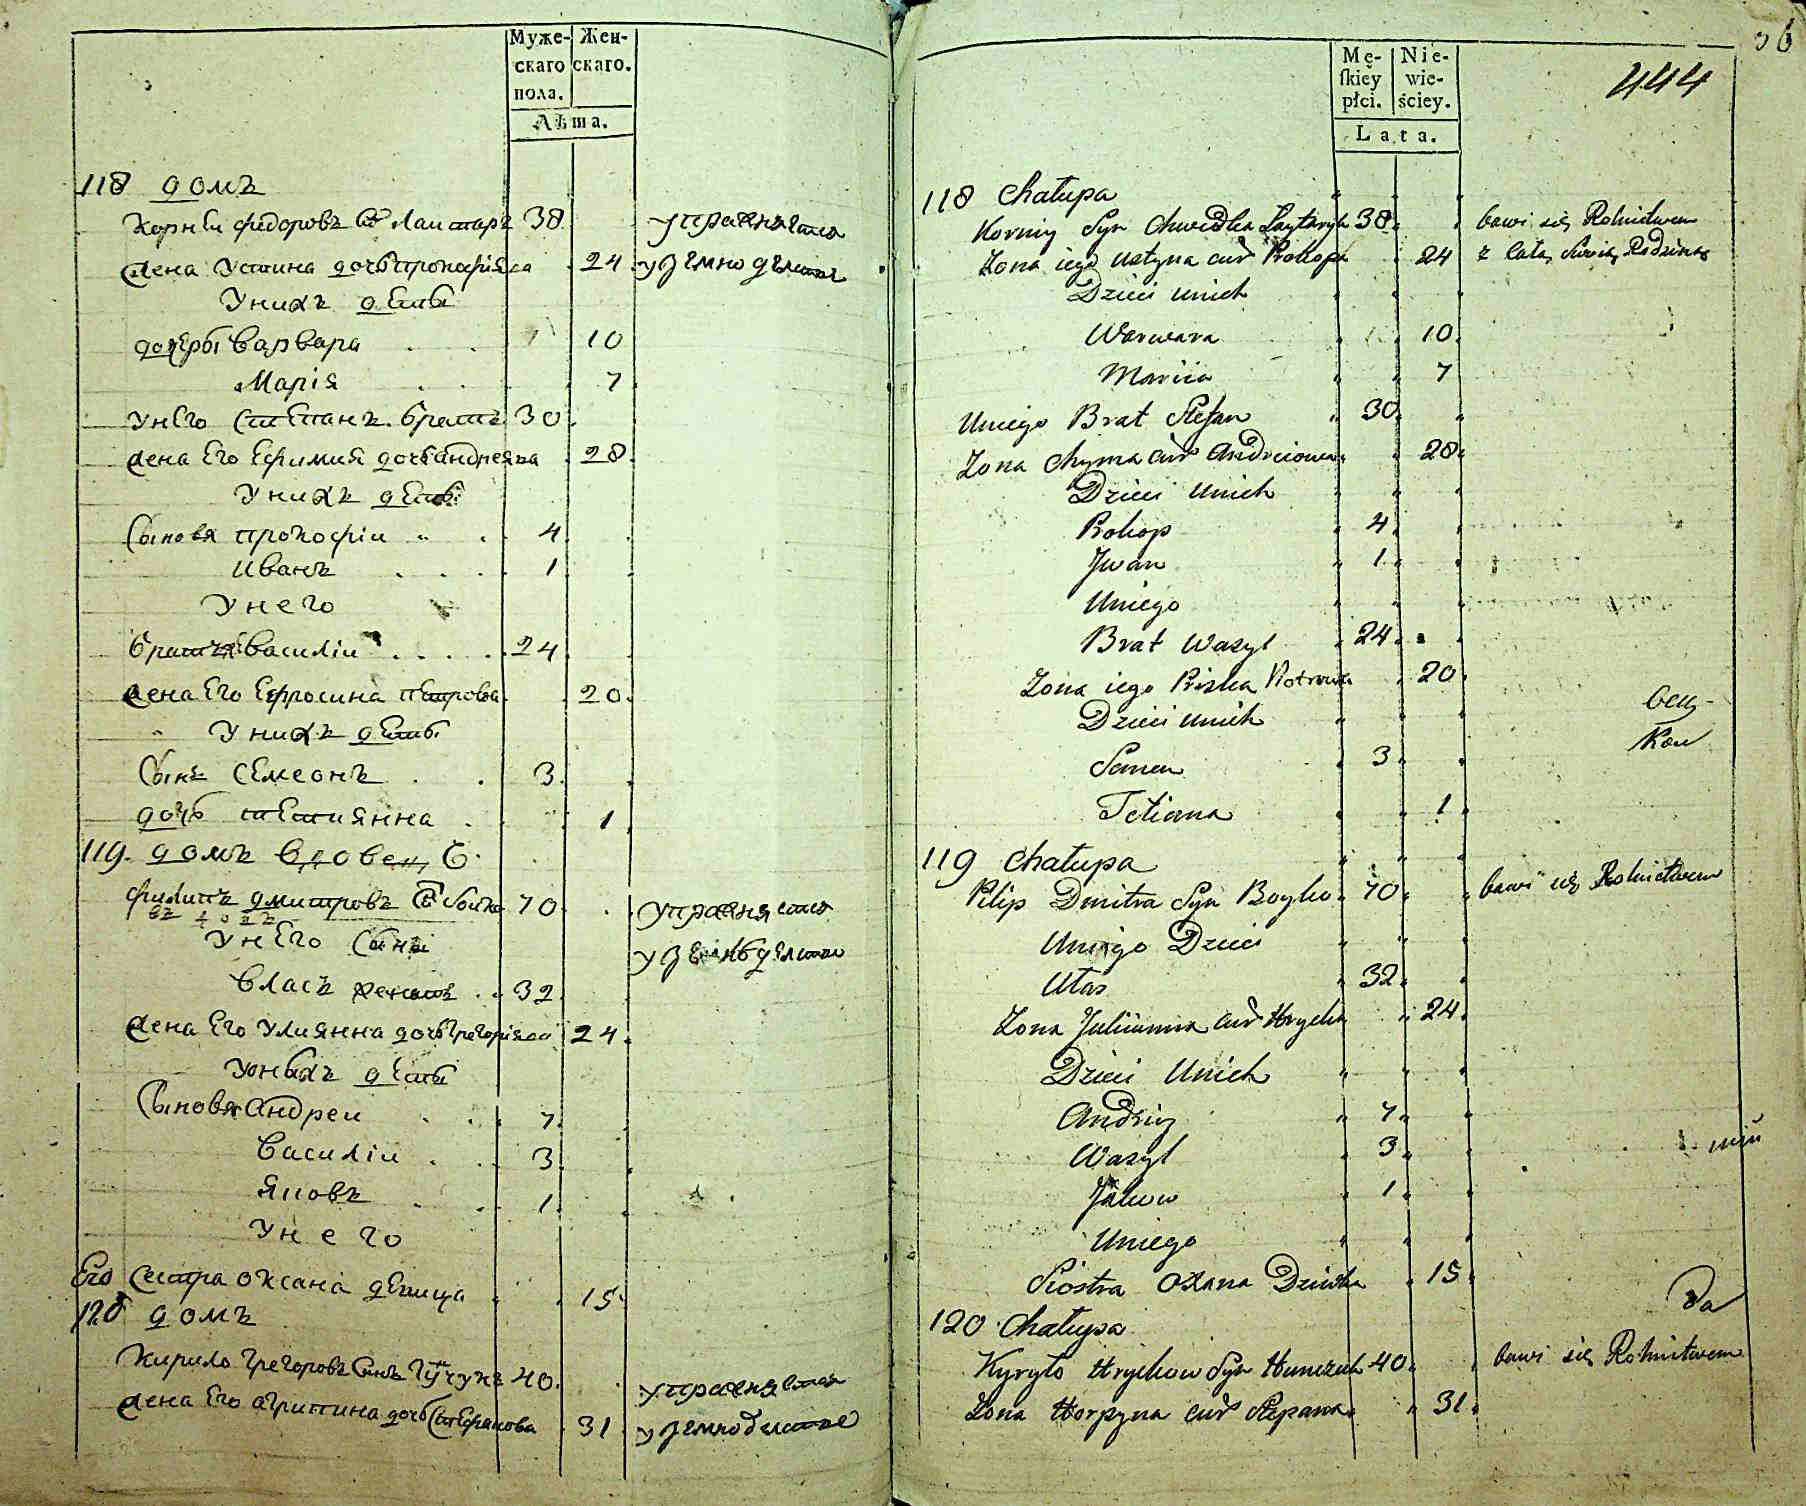 Муже-
скаго
пола.
Жен-
скаго.
Лѣта.
118 домъ
Корнѣи федоровъ Сн Лаитаръ 38 упражняется
жена Устина дочь прокофіява 24 у земно делствѣ
Унихъ дети
дочеры Варвара 10
Марія 7
Унего Степанъ братъ 30
жена Его Ефимия дочь андреява 28
Унихъ дети
Сыновя прокофіи 4
иванъ 1
Унего
братъ Василіи 24
жена Его Ефросина петрова 20
Унихъ дети
Сынъ Семеонъ 3
дочь тетиянна 1
119. домъ вдовец
филипъ дмитровъ Сн боико 70 упражняется
Унего Сыны
власъ женатъ 32
жена Его Улиянна дочь грегоріява 24
Уонихъ дети
Сыновя андреи 7
Василіи 3
яковъ 1
Унего
Его Сестра оксана девица 15
120 домъ
Кирило грегоровъ Синъ 40 упражняется
жена Его агрипина дочь Стефанова 31 у земноделстве
36
444
Mę-
ſkiey
płci.
Nie-
wie-
ściey.
Lata.
118 Chałupa
Korniy Syn Chwedka Laytaryk 38 bawi się Rolnictwem
Zona iego Ustyna cur Prokopa 24 z całą Swoią Rodziną
Dzieci unich
Warwara 10
Mariia 7
Uniego Brat Stefan 30
Zona Chyma cur Andreiowa 28
Dzieci Unich
Prokop 4
Jwan 1
Uniego
Brat Wasyl 24
Zona iego Priska Piotrowa 20
Dzieci unich
Semen 3
Tetiana 1
119 Chałupa
Pilip Dmitra Syn Boyko 70 bawi się Rolnictwem
Uniego Dzieci
Ułas 32
Zona Julianna cur Hrycka 24
Dzieci Unich
Andriy 7
Wasyl 3
Jakow 1
Uniego
Siostra Oxana Dziwka 15
120 Chałupa
Kyryło Hryckow Syn Hunczuk 40 bawi się Rolnictwem
Zona Horpyna cur Stepana 31